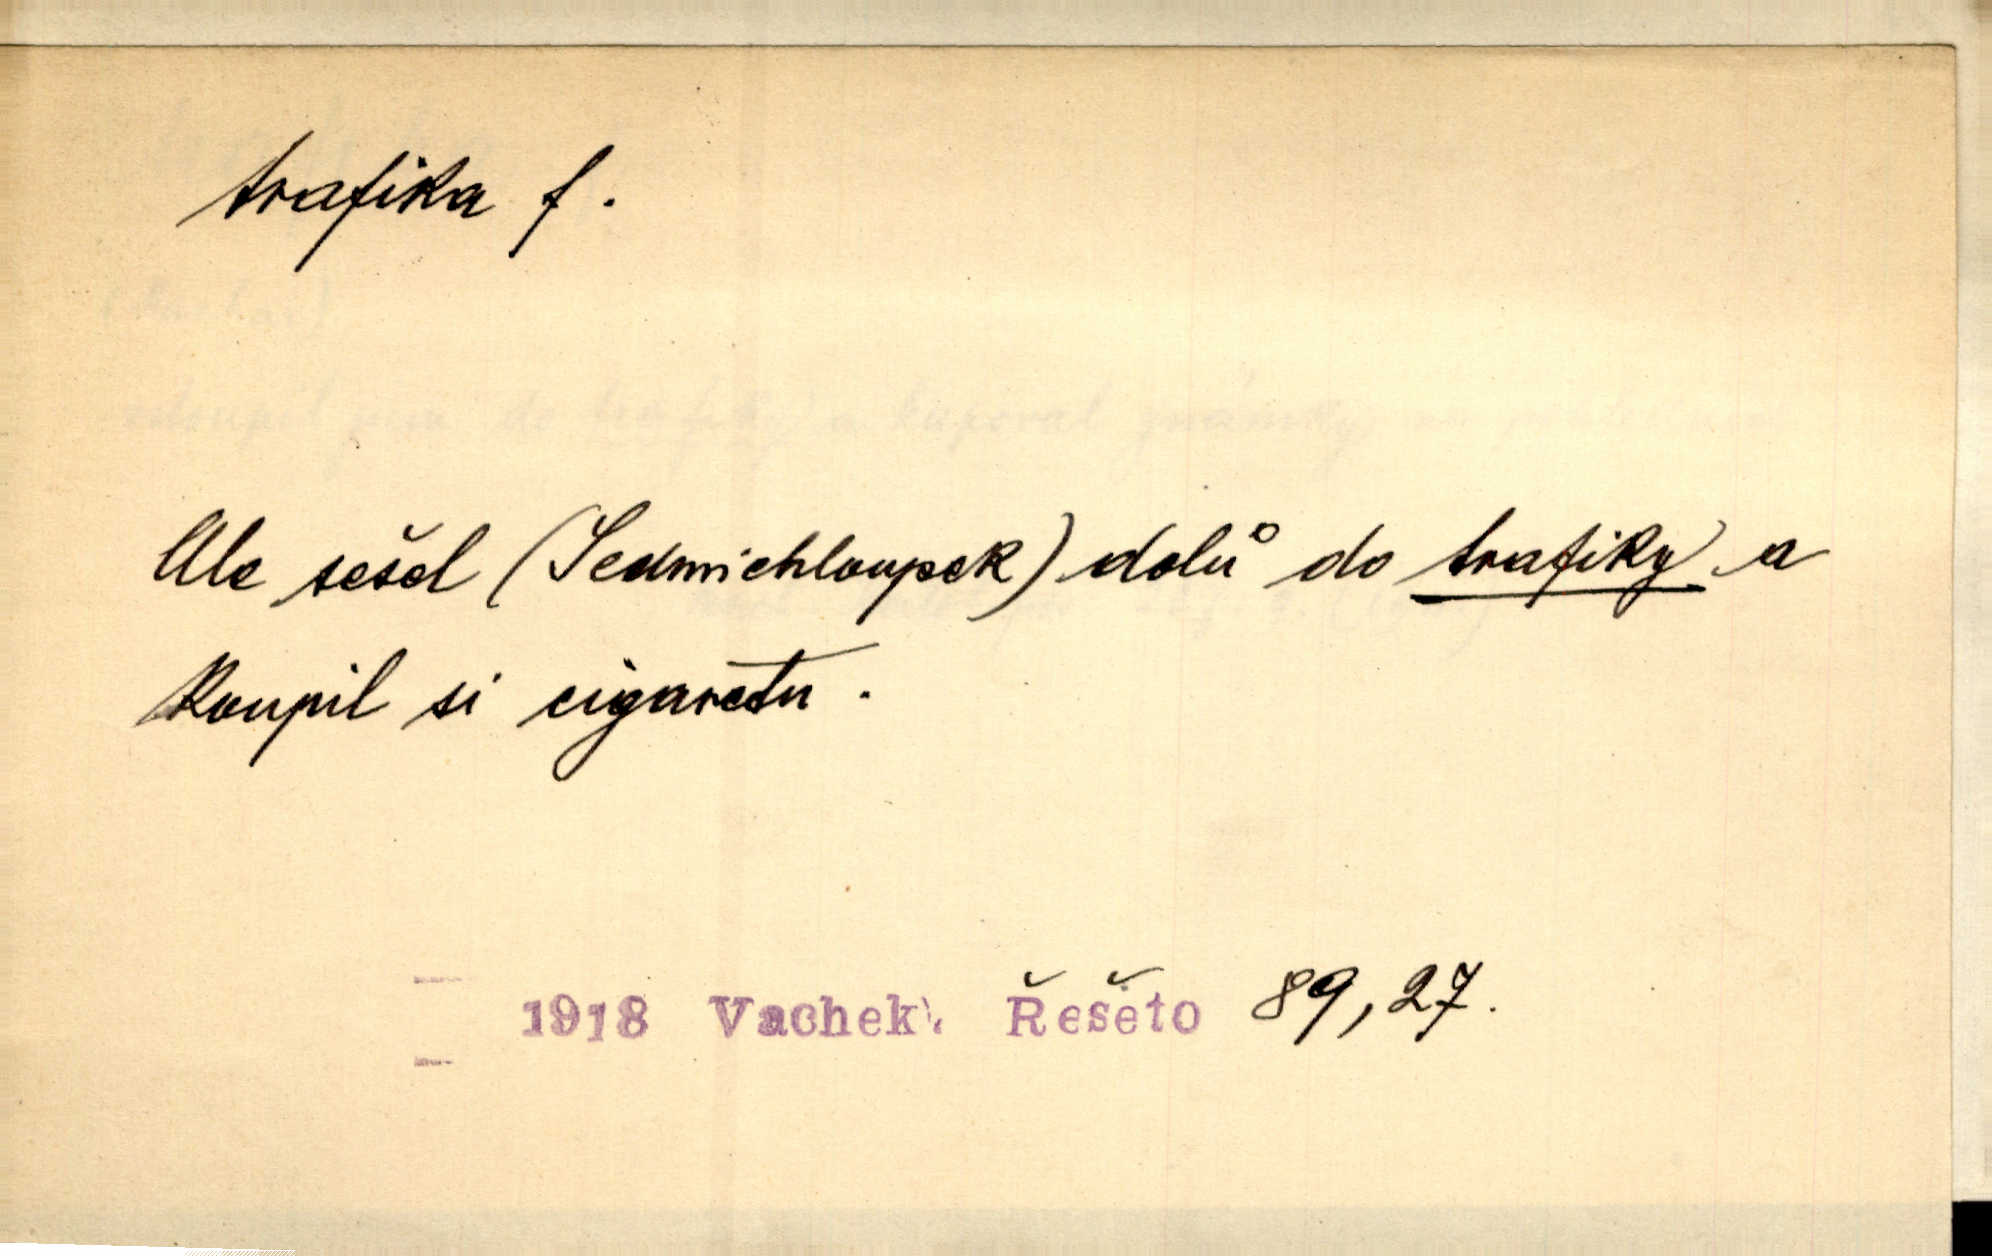 trafika f.
Ale sešel (Sedmichloupek) dolů do trafiky a
koupil si cigaretu.
1918 Vachek. Řešeto 89, 27.